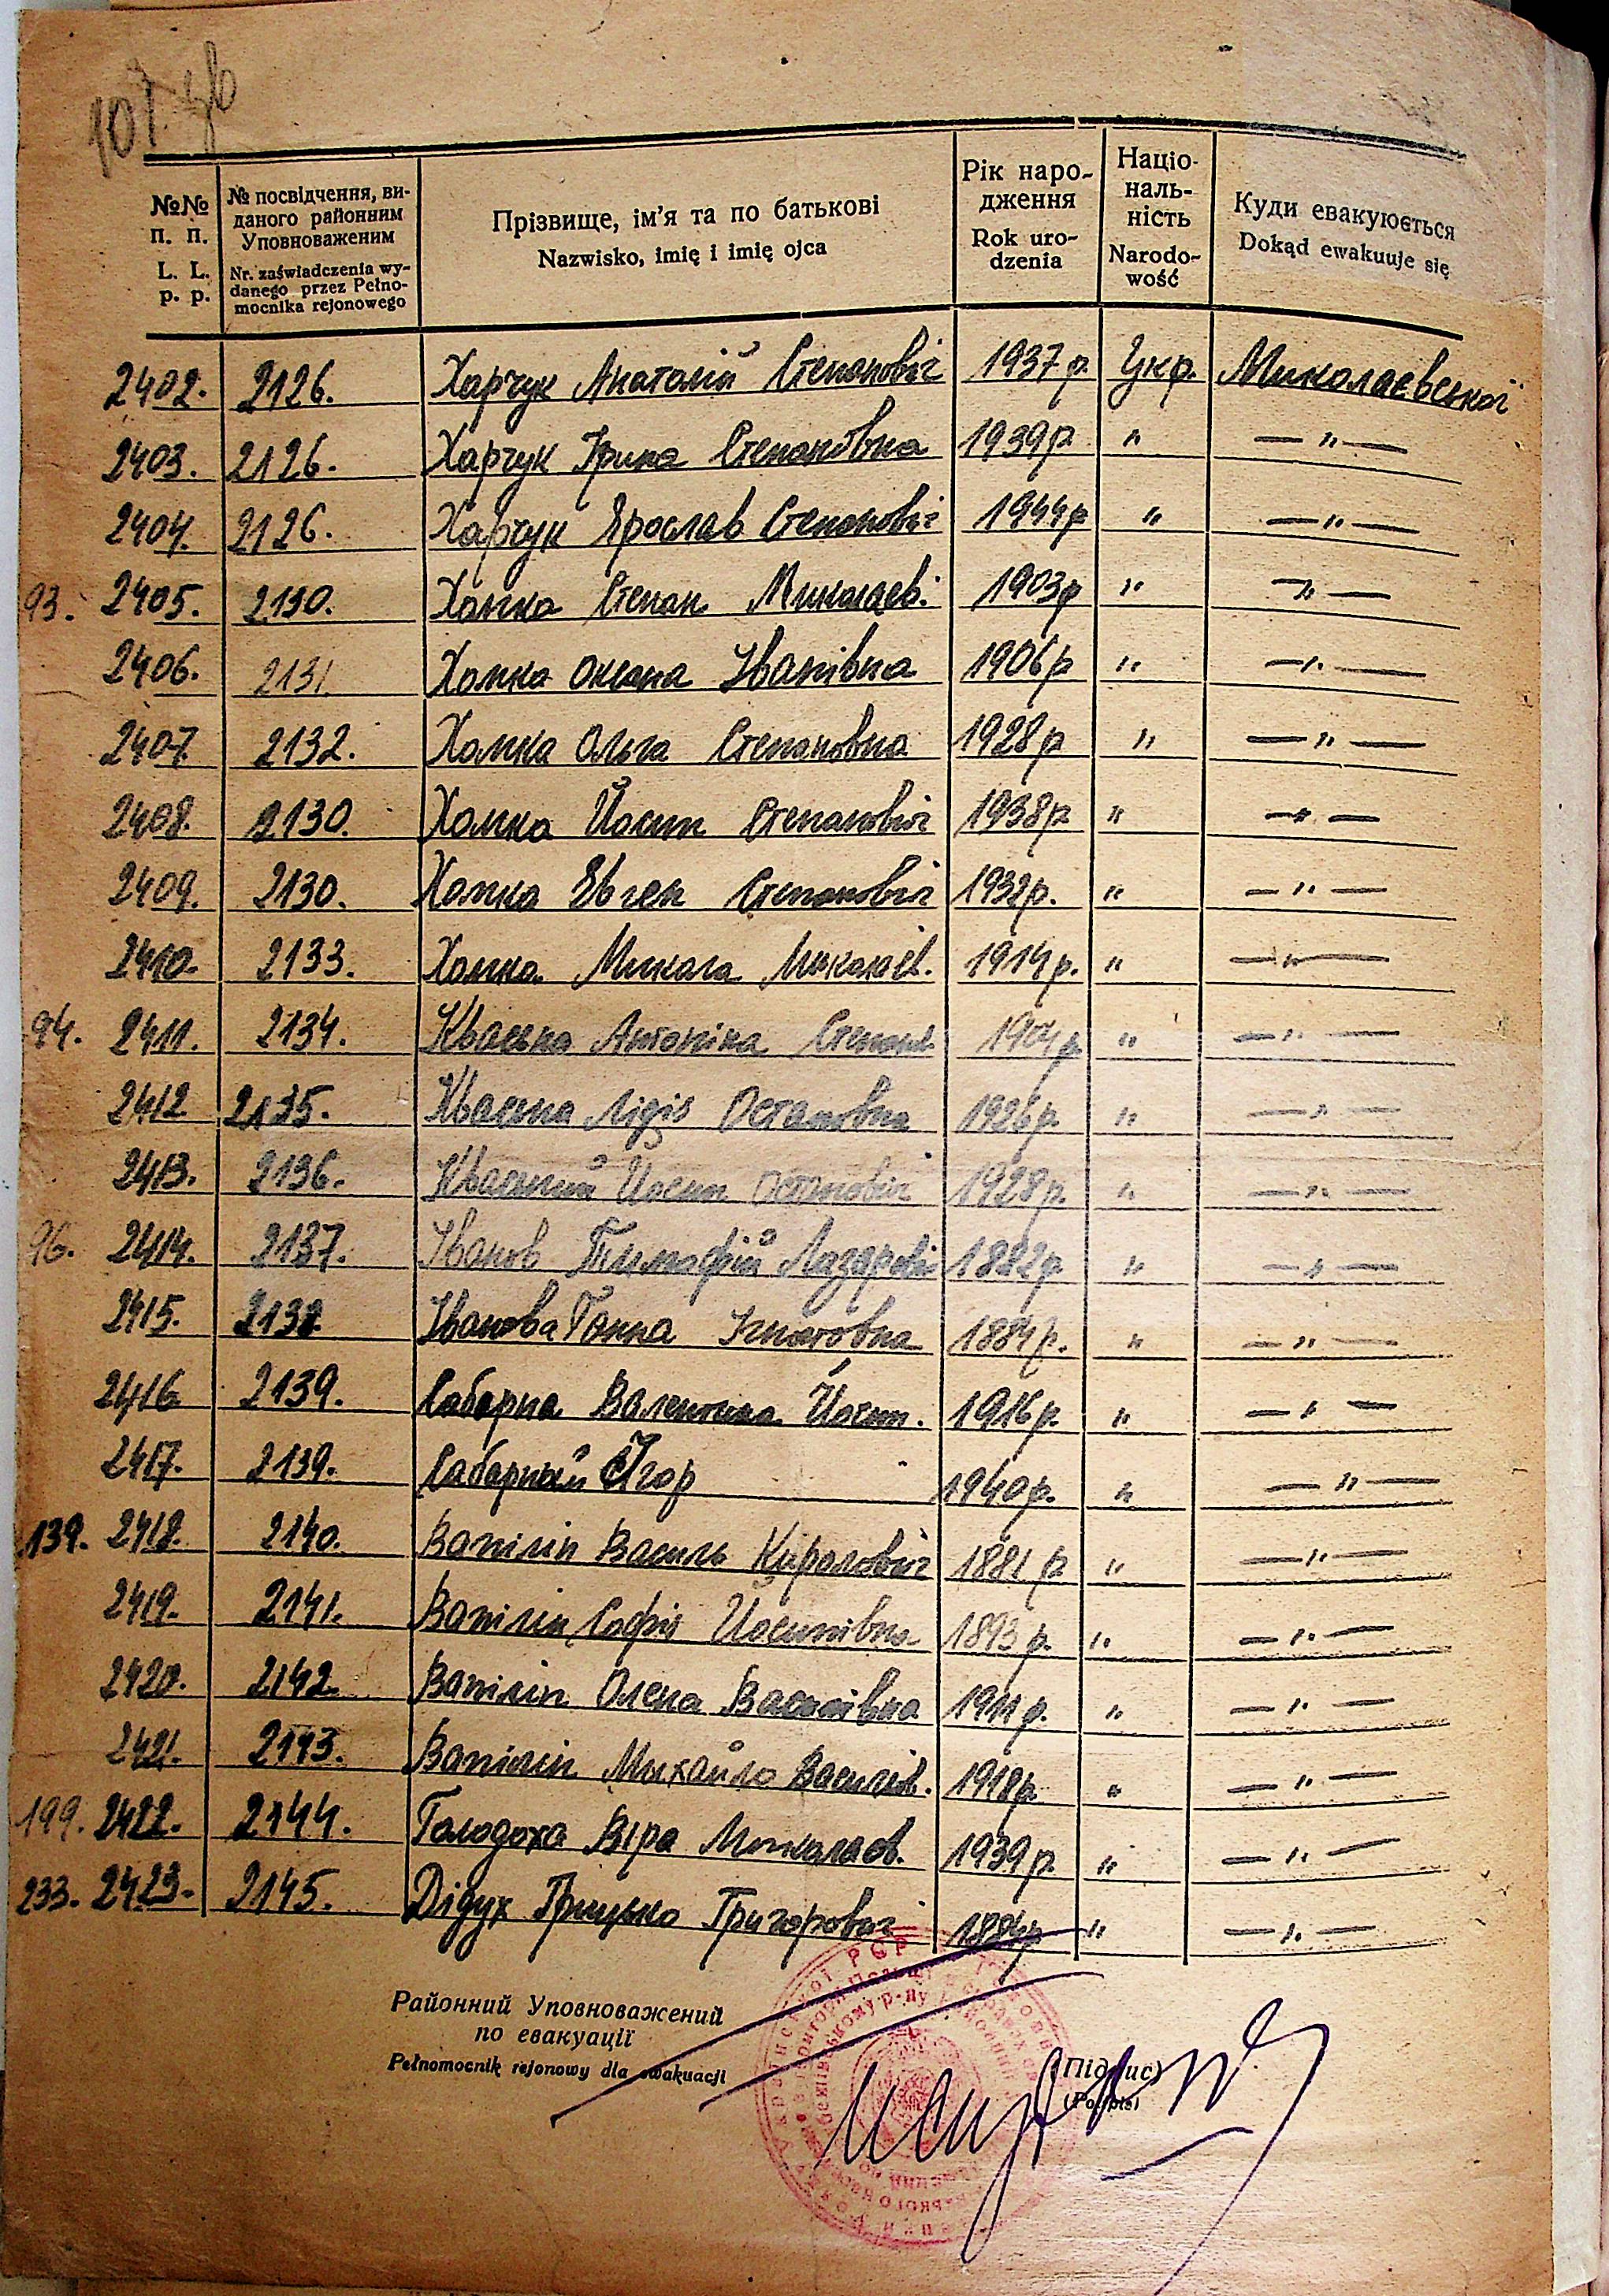 №№
п. п.
L. L.
p. p.
№ посвідчення, ви-
даного районним
Уповноваженим
Nr. zaświadczenia wy-
danego przez Pełno-
mocnika rejonowego
Прізвище, ім'я та по батькові
Nazwisko, imię i imię ojca
Рік наро-
дження
Rok uro-
dzenia
Націо-
наль-
ність
Narodo-
wość
Куди евакуюється
Dokąd ewakuuje się
2402. 2126. Харчук Анатолій Степанович 1937 р. Укр. Миколаєвської
2403. 2126. Харчук Ірина Степановна 1939 р " — " —
2404. 2126. Харчук Ярослав Степанович 1944 р " — " —
93. 2405. 2130. Хомка Степан Миколаєв. 1903 р " — " —
2406. 2131. Хомка Оксана Іванівна 1906 р " — " —
2407. 2132. Хомка Ольга Степановна 1928 р " — " —
2408. 2130. Хомка Йосип Степанович 1938 р " — " —
2409. 2130. Хомка Євген Степанович 1932 р. " — " —
2410. 2133. Хомка Микола Миколаєв. 1914 р. " — " —
94. 2411. 2134. Антоніна Степанів 1904 р. " — " —
2412 2135. Лідія Остаповна 1926 р. " — " —
2413. 2136. Йосип Остапович 1928 р. " — " —
96. 2414. 2137. Іванов Тимофій Лазарович 1882 р. " — " —
2415. 2138. Іванова Ганна Ігнатовна 1884 р. " — " —
2416 2139. Сабарна Валентина Йосип. 1916 р. " — " —
2417. 2139. Сабарный Ігор 1940 р. " — " —
139. 2418. 2140. Вапілін Василь Кирилович 1881 р " — " —
2419. 2141. Вапілін Софія Йосипівна 1893 р. " — " —
2420. 2142 Вапілін Олена Василівна 1911 р. " — " —
2421. 2143. Вапілін Михайло Василів. 1918 р. " — " —
199. 2422. 2144. Голодоха Віра Миколаєв. 1939 р. " — " —
233. 2423. 2145. Дідух Грицько Григорович 1884 р " — " —
Районний Уповноважений
по евакуації
Pełnomocnik rejonowy dla ewakuacji
(Підпис)
(Podpis)